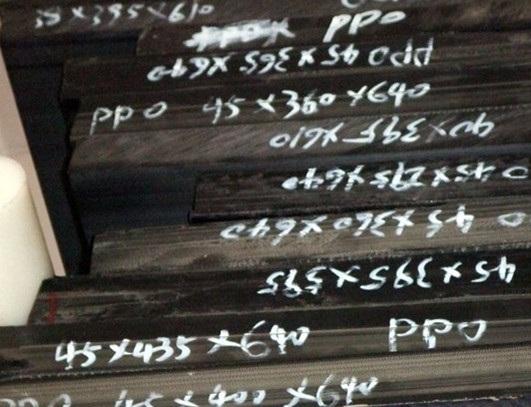 35 X 395 X 610
PPO
PPO 45 X 365 X 640
PPO 45 X 360 X 640
40 X 395 X 610
45 X 295 X 640
45 X 360 X 640
45 X 395 X 595
45 X 435 X 640 PPO
PPO 45 X 400 X 640